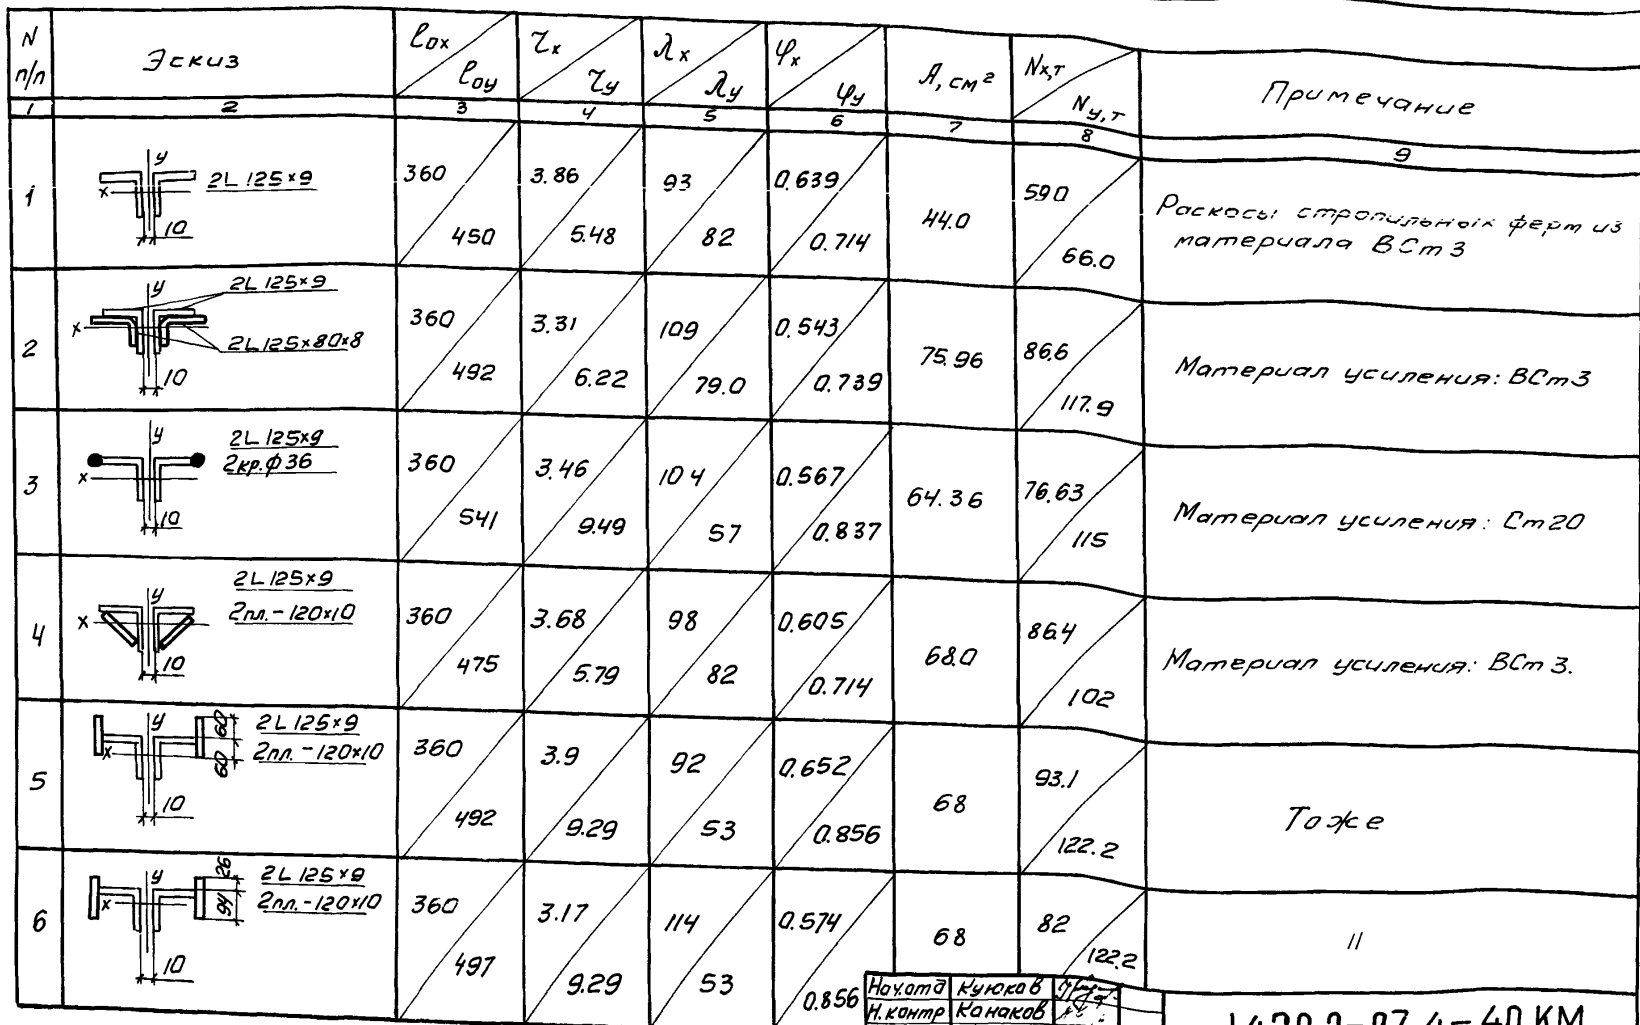 N п/п Эскиз ℓox ℓoy τx τy λx λy φx φy A, см² Nx,т Ny,т Примечание
1 2 3 4 5 6 7 8 9
1 y x 2L 125×9 10 360 450 3.86 5.48 93 82 0.639 0.714 44.0 59.0 66.0 Раскосы стропильных ферм из
материала ВСт3
2 y x 2L 125×9 2L 125×80×8 10 360 492 3.31 6.22 109 79.0 0.543 0.739 75.96 86,6 117.9 Материал усиления: ВСт3
3 y x 2L 125×9
2кр.ф36 10 360 541 3.46 9.49 104 57 0.567 0.837 64.36 76,63 115 Материал усиления: Ст20
4 y x 2L 125×9
2пл.-120×10 10 360 475 3.68 5.79 98 82 0.605 0.714 68.0 86.4 102 Материал усиления: ВСт3.
5 y x 60 60 2L 125×9
2пл.-120×10 10 360 492 3.9 9.29 92 53 0.652 0.856 68 93.1 122.2 Тоже
6 y x 26 94 2L 125×9
2пл.-120×10 10 360 497 3.17 9.29 114 53 0.574 0.856 68 82 122.2 "
Нач.отд Куюков
Н.контр Канаков